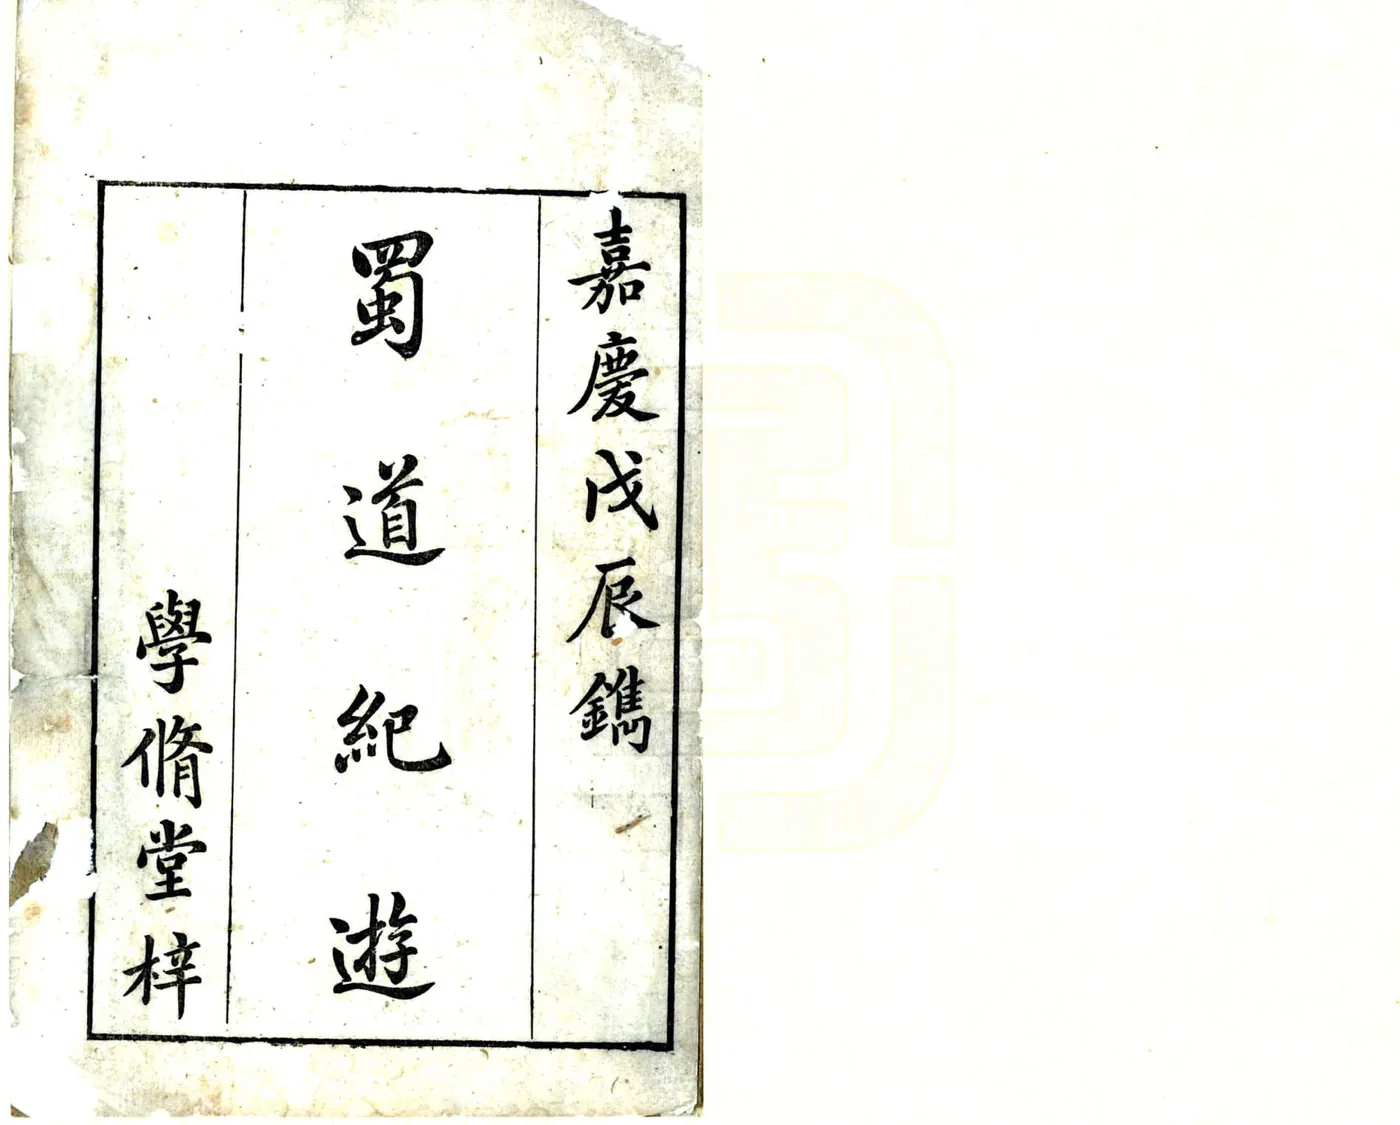 嘉慶戊辰鐫
蜀道紀遊
學脩堂梓